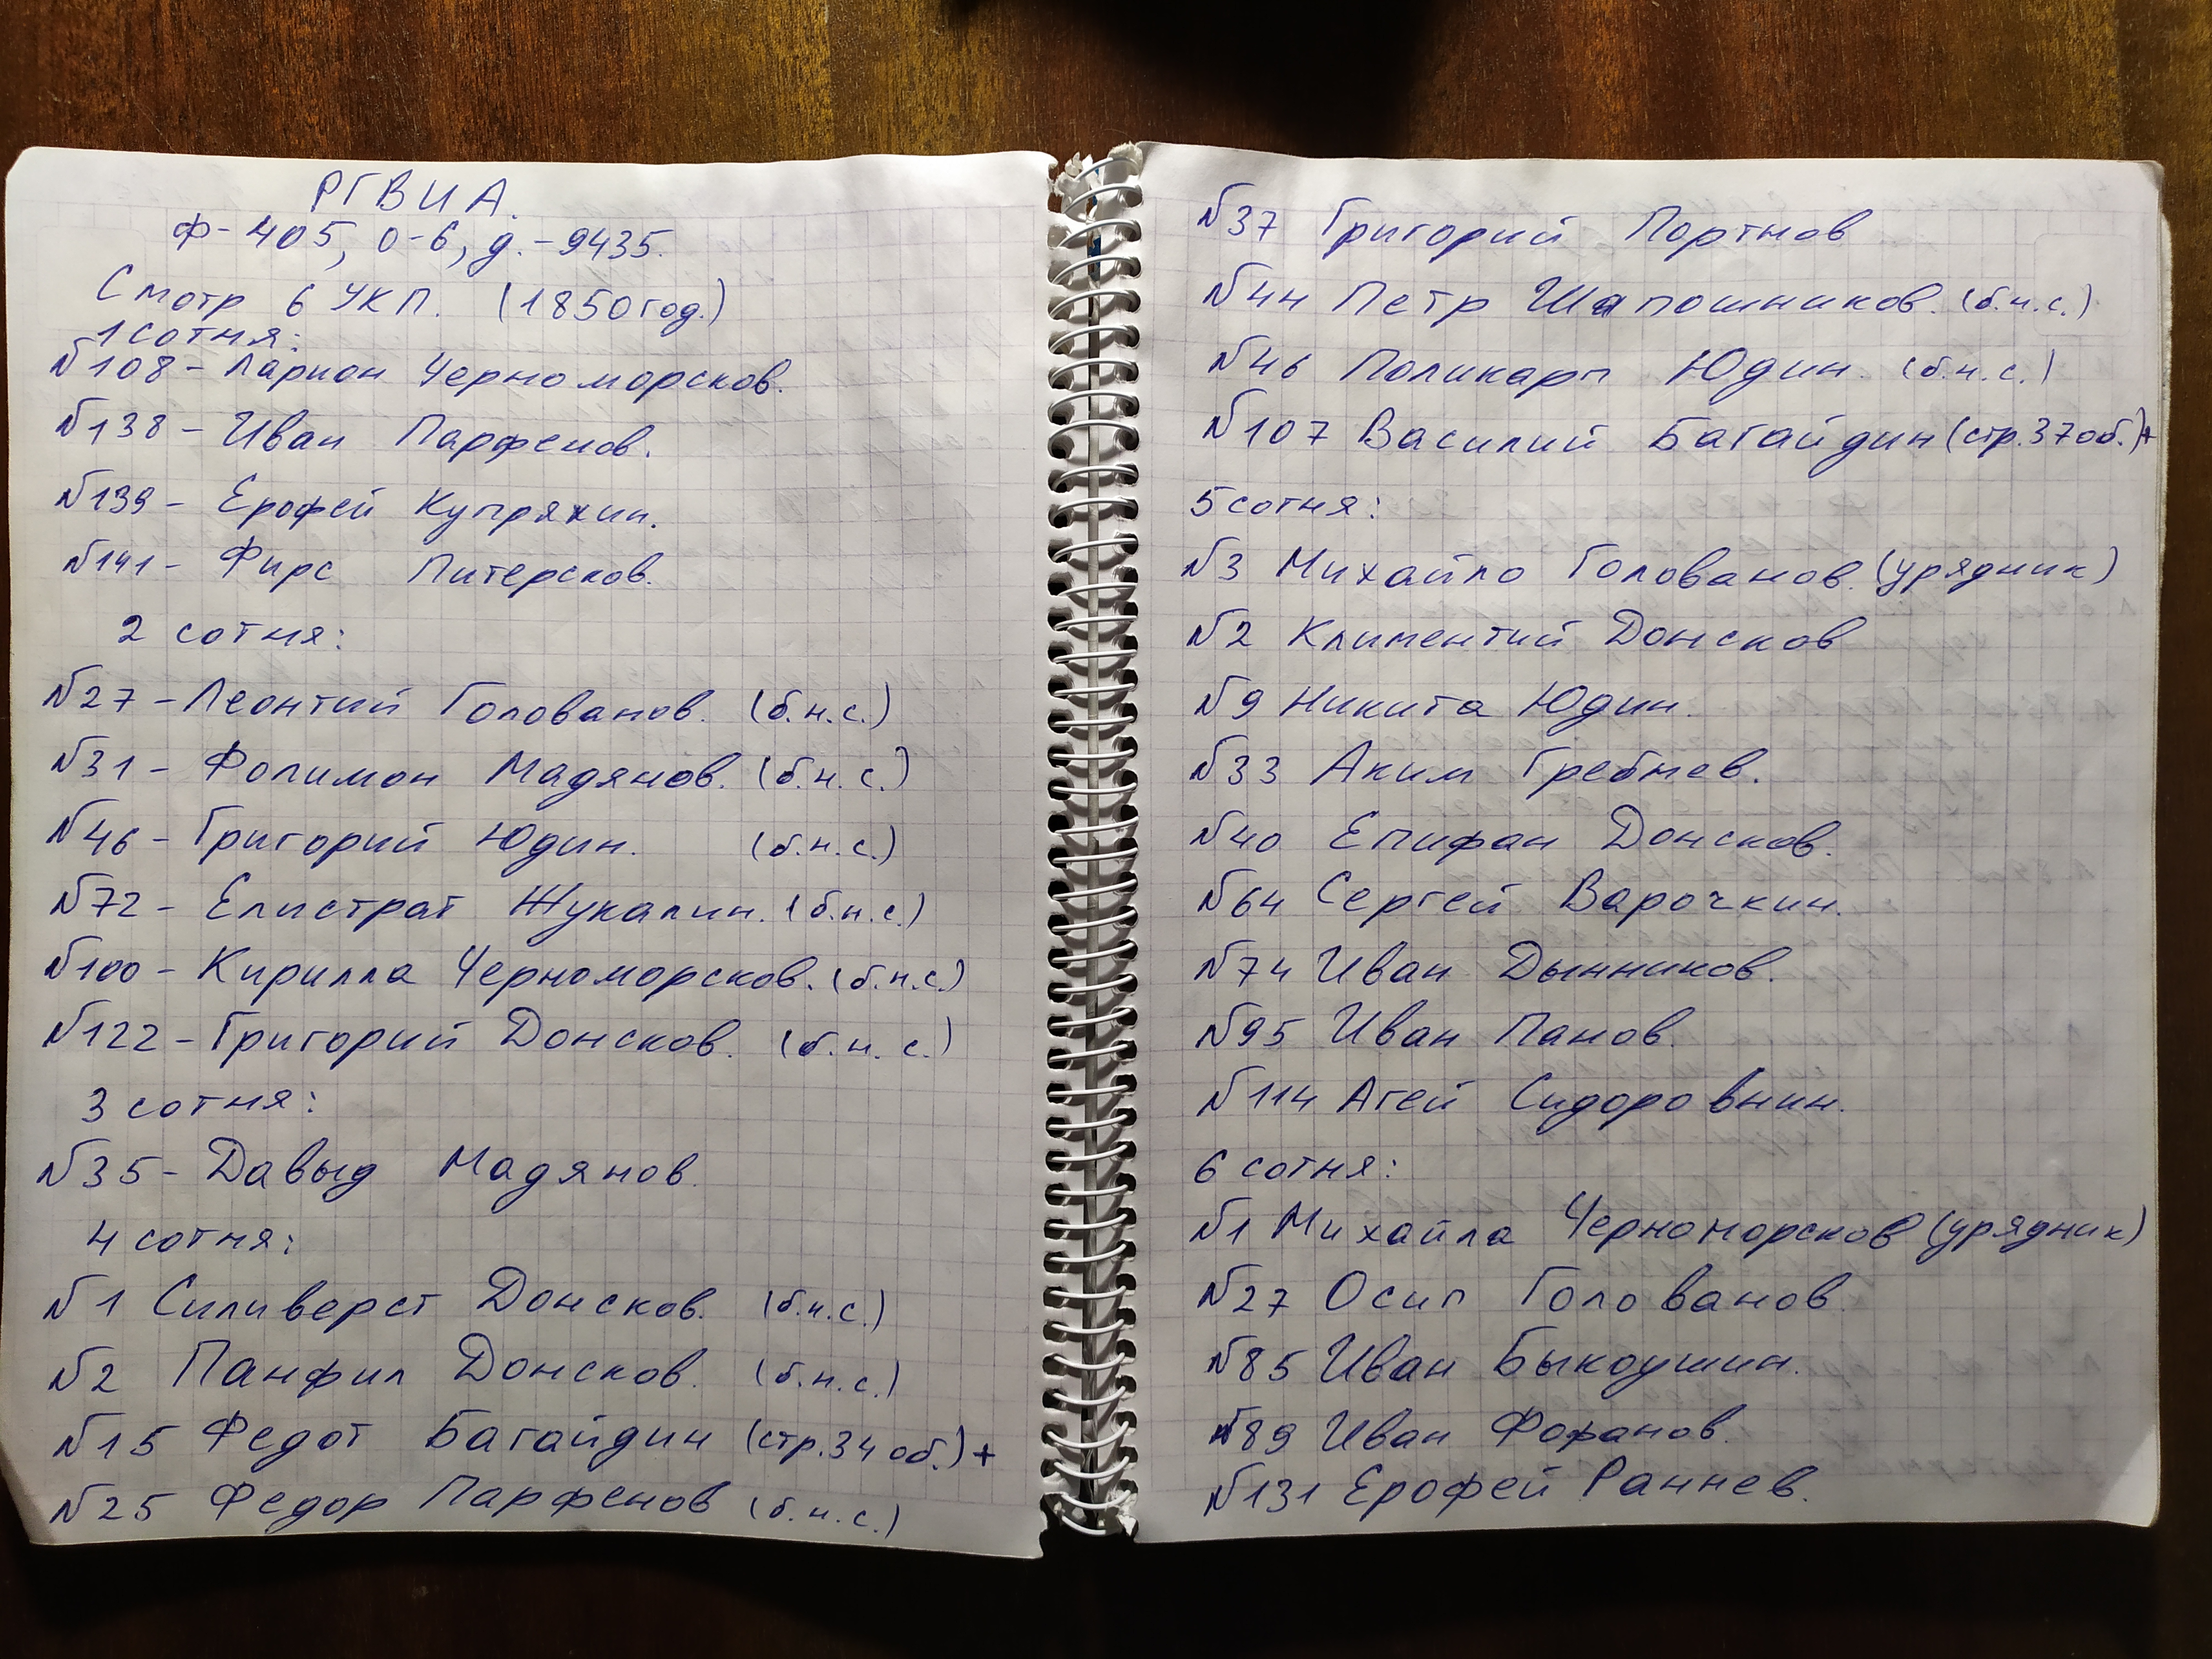 РГВИА.
Ф-405, о-6, д.-9435.
Смотр 6 УКП. (1850год.)
1 сотня:
№108- Ларион Черноморсков.
№138- Иван Парфенов.
№139- Ерофей Купряхин.
№141- Фирс Питерсков.
2 сотня:
№27-Леонтий Голованов. (б.н.с.)
№31- Фолимон Мадянов. (б.н.с.)
№46- Григорий Юдин. (б.н.с.)
№72- Елистрат Жукалин. (б.н.с.)
№100- Кирилла Черноморсков. (б.н.с.)
№122-Григорий Донсков. (б.н.с.)
3 сотня:
№35-Давыд Мадянов.
4 сотня:
№1 Силиверст Донсков. (б.н.с.)
№2 Панфил Донсков. (б.н.с.)
№15 Федот Багайдин (стр.34 об.)+
№25 Федор Парфенов (б.н.с.)
№37 Григорий Портнов
№44 Петр Шапошников. (б.н.с.)
№46 Поликарп Юдин. (б.н.с.)
№107 Василий Багайдин (стр.37об.)+
5 сотня:
№3 Михайло Голованов. (урядник)
№2 Климентий Донсков
№9 Никита Юдин.
№33 Аким Гребнев.
№40 Епифан Донсков.
№64 Сергей Варочкин.
№74 Иван Дынников.
№95 Иван Панов.
№114 Агей Сидоровнин.
6 сотня:
№1 Михайла Черноморсков (урядник)
№27 Осип Голованов.
№85 Иван Быкоушин.
№89 Иван Фофанов.
№131 Ерофей Раннев.